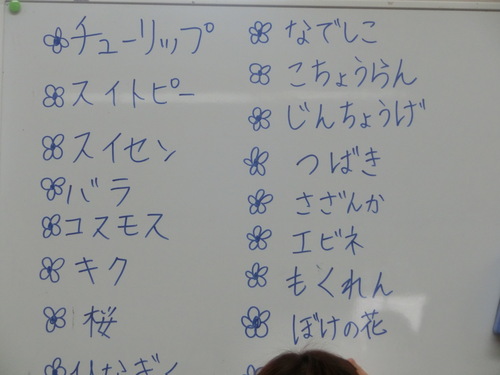 チューリップ
スイトピー
スイセン
バラ
コスモス
キク
桜
なでしこ
こちょうらん
じんちょうげ
つばき
さざんか
エビネ
もくれん
ぼけの花